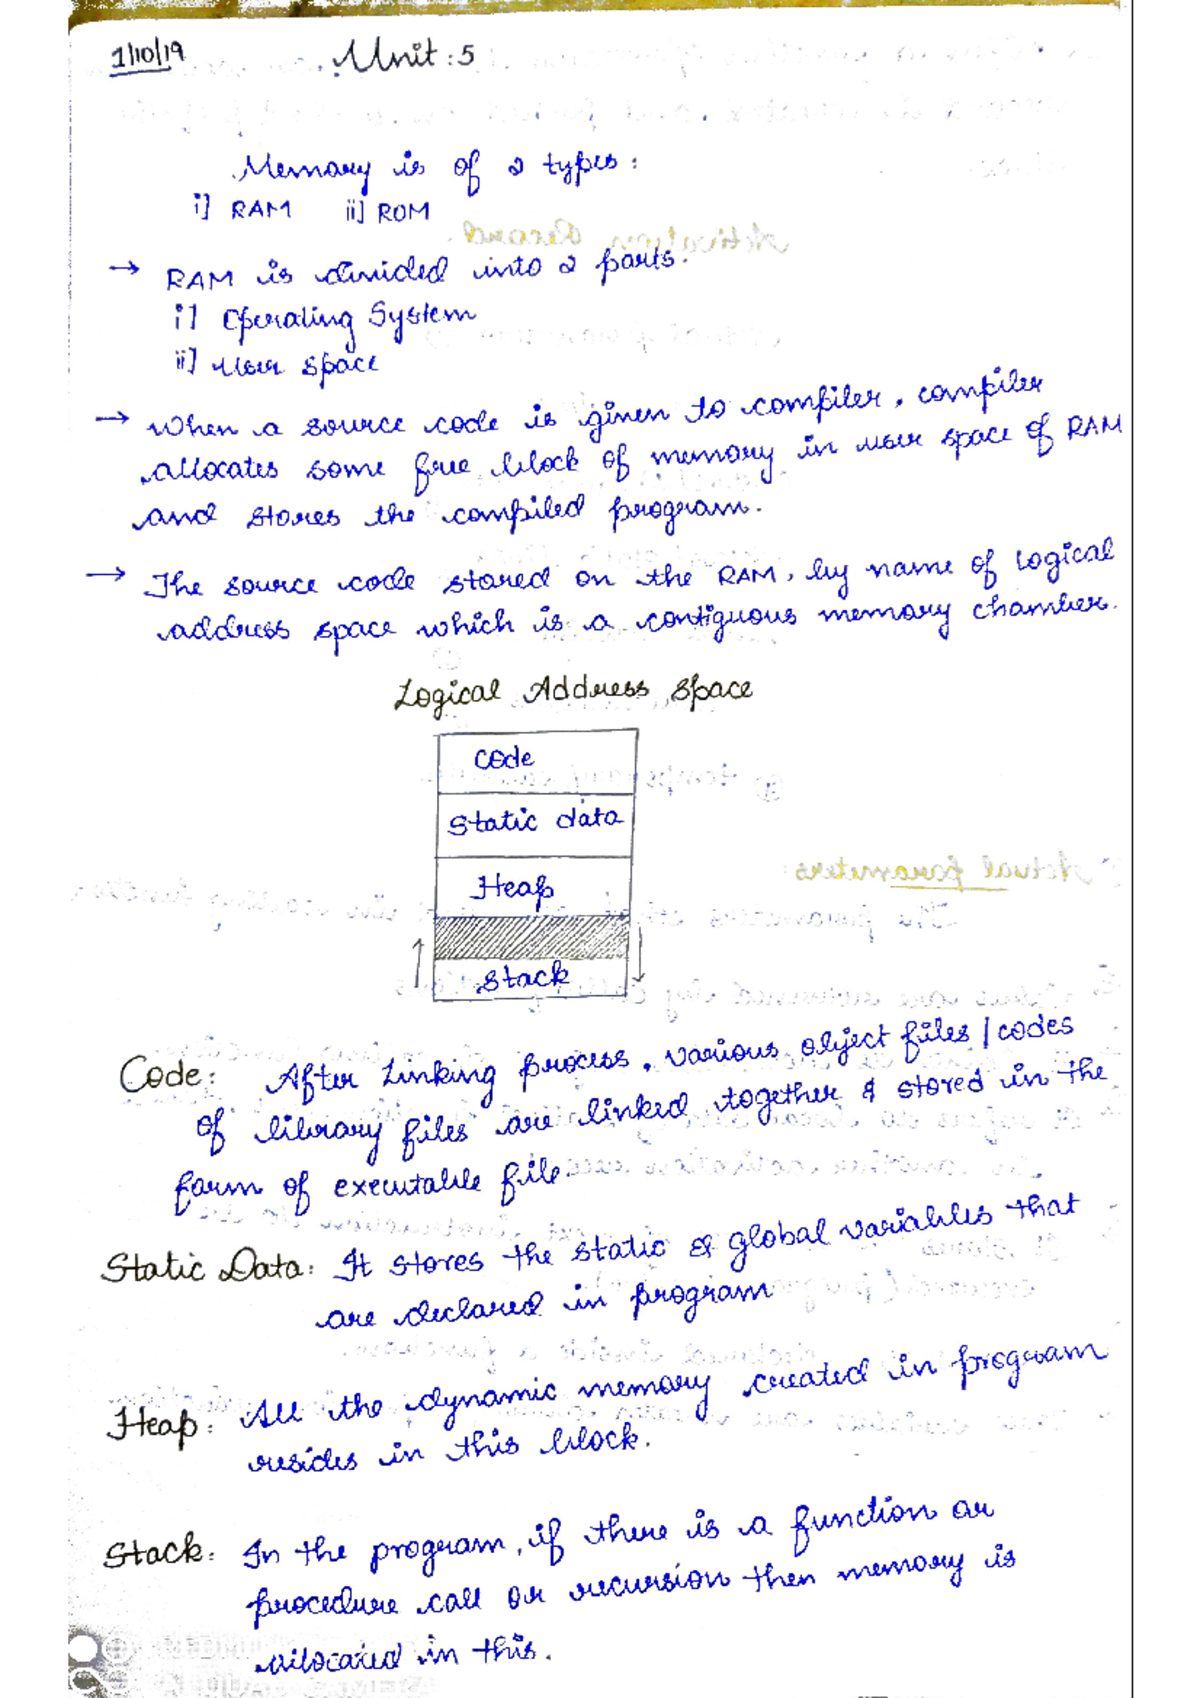 1/10/19
Unit : 5
Memory is of 2 types :
i] RAM ii] ROM
→ RAM is divided into 2 parts.
i] Operating System
ii] User space
→ When a source code is given to compiler, compiler
allocates some free block of memory in user space of RAM
and stores the compiled program.
→ The source code stored on the RAM, by name of Logical
address space which is a contiguous memory chamber.
Logical Address Space
code
static data
Heap
stack
Code: After Linking process, various object files / codes
of library files are linked together & stored in the
form of executable file.
Static Data: It stores the static & global variables that
are declared in program
Heap: All the dynamic memory created in program
resides in this block.
Stack: In the program, if there is a function or
procedure call or recursion then memory is
allocated in this.